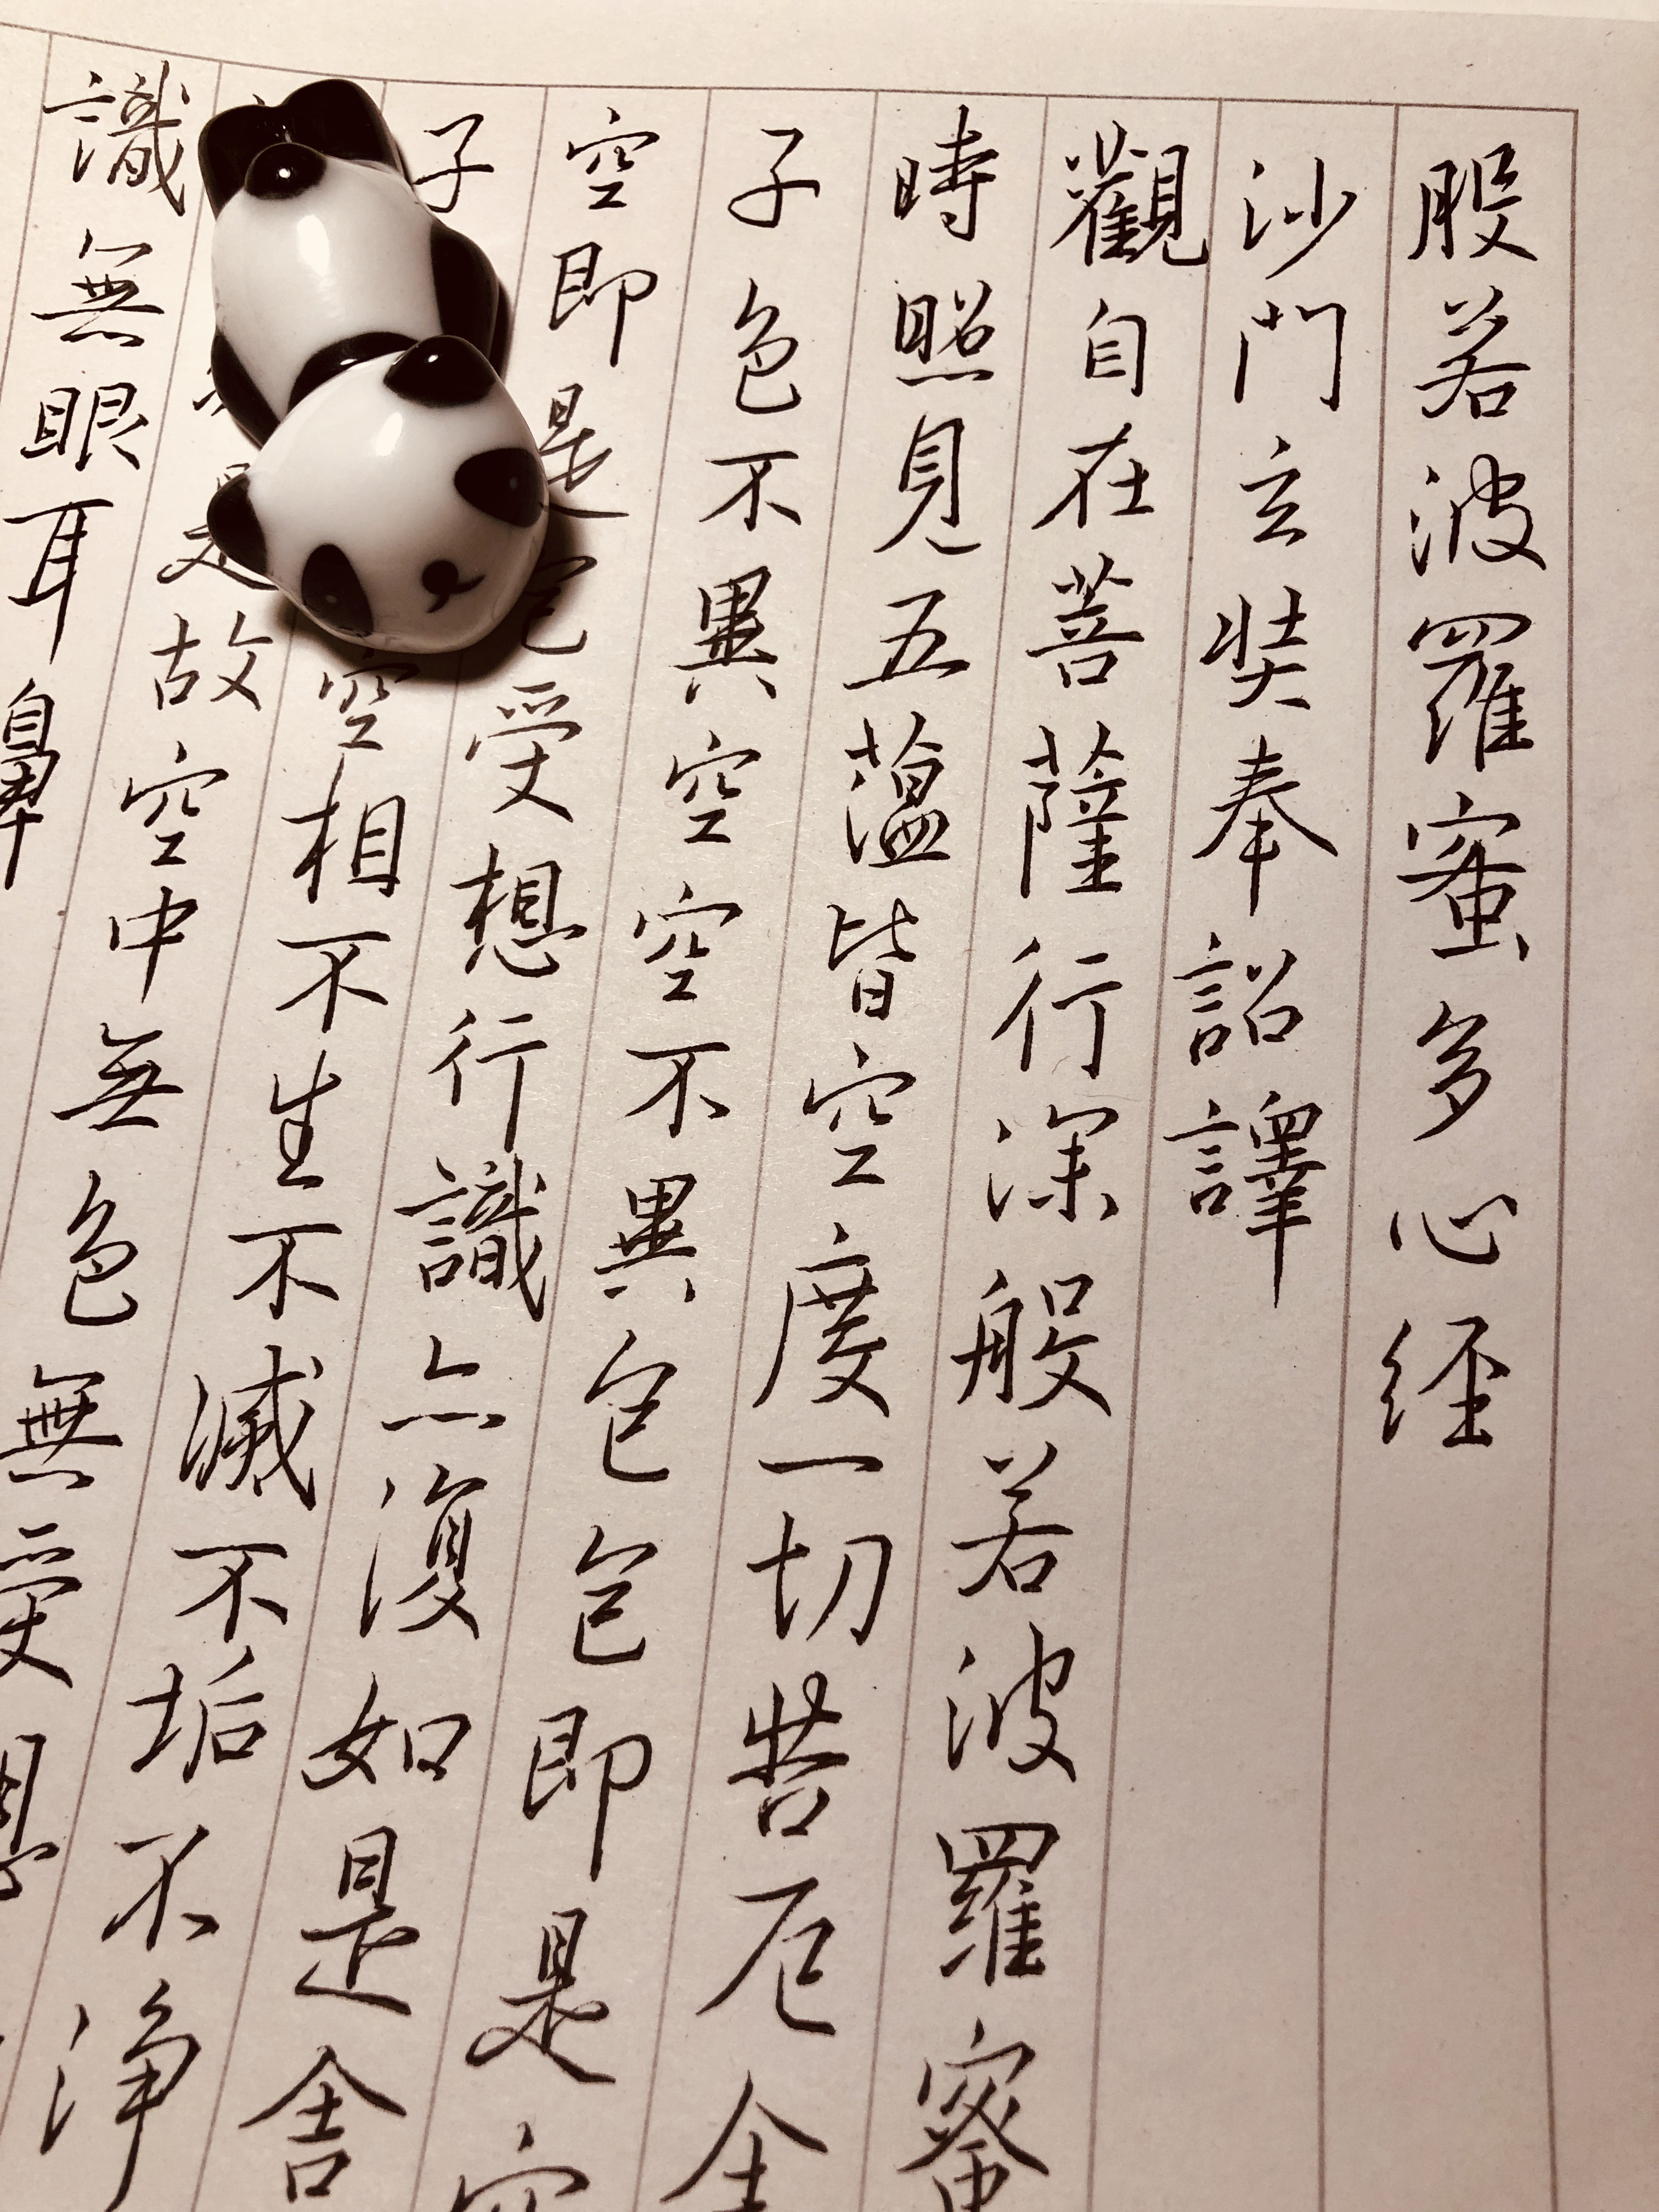 般若波羅蜜多心経
沙門玄奘奉詔譯
觀自在菩薩行深般若波羅蜜
時照見五蘊皆空度一切苦厄舍
子色不異空空不異色色即是空
空即是色受想行識亦復如是舍
子空相不生不滅不垢不净
是故空中無色無受想
識無眼耳鼻